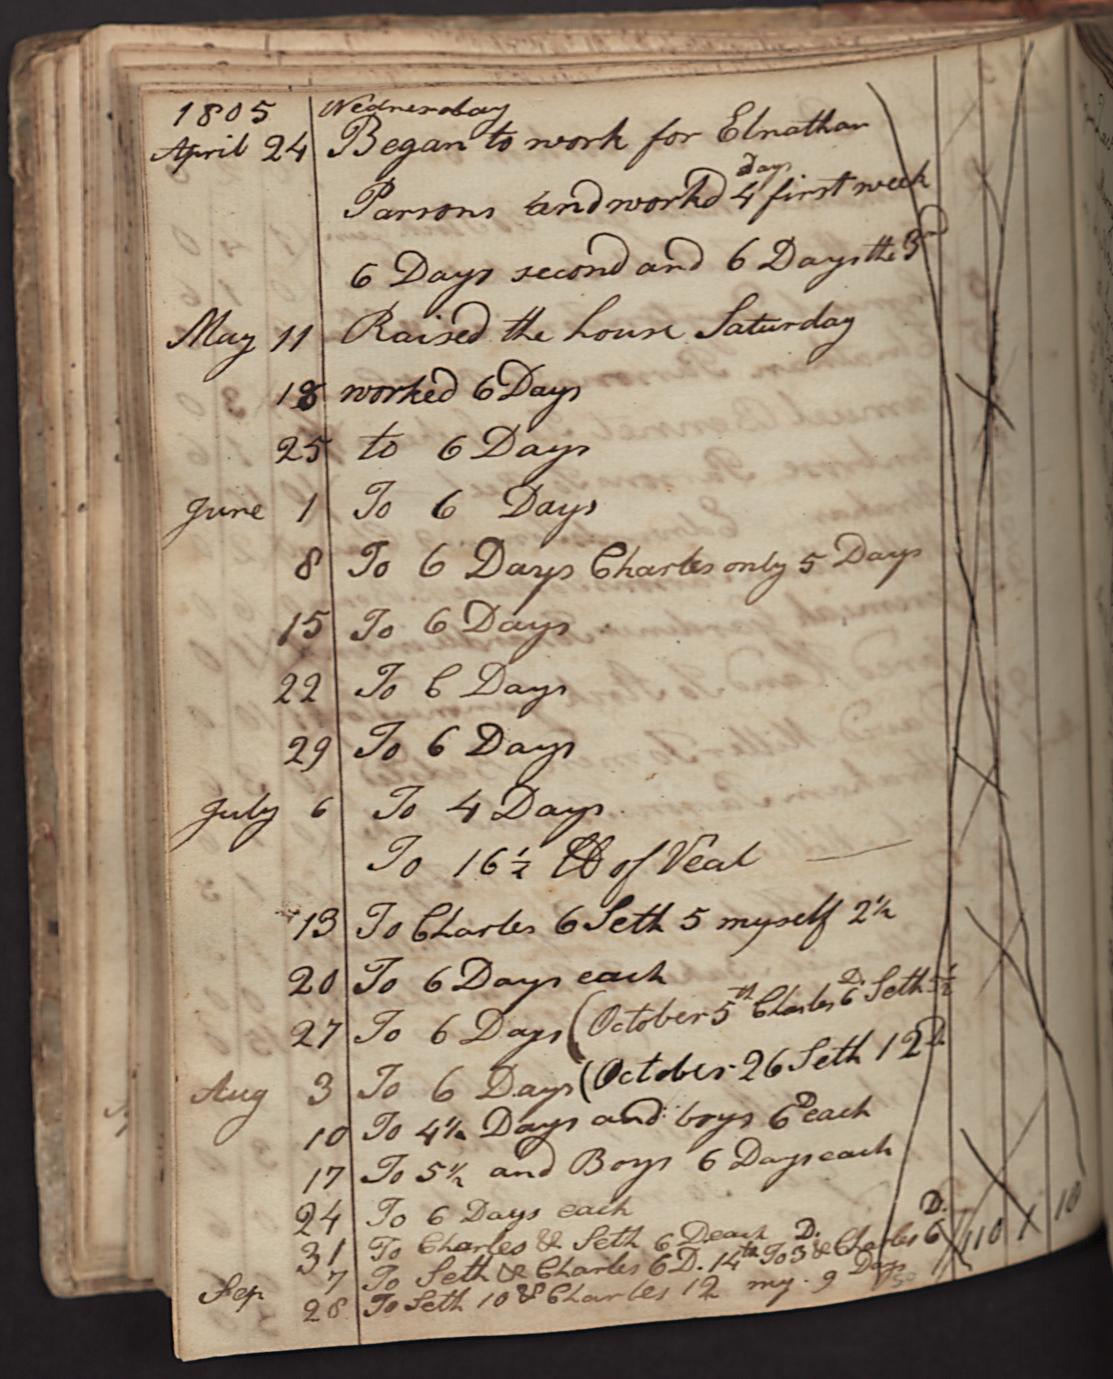 1805 Wednesday
April 24 Began to work for Elnathan
Parsons and workd 4 days first week
6 Days second and 6 Days the 3rd
May 11 Raised the house Saturday
18 worked 6 Days
25 to 6 Days
June 1 To 6 Days
8 To 6 Days Charles only 5 Days
15 To 6 Days
22 To 6 Days
29 To 6 Days
July 6 To 4 Days
To 16½ lb of Veal
13 To Charles 6 Seth 5 myself 2½
20 To 6 Days each
27 To 6 Days (October 5th Charles 6 D. Seth 5½
Aug 3 To 6 Days (October 26 Seth 12 D
10 To 4½ Days and boys 6 D each
17 To 5½ and Boys 6 Days each
24 To 6 Days each
31 To Charles & Seth 6 D each
Sep 7 To Seth & Charles 6 D. 14th To 3 D. & Charles 6 D. 110 10
28 To Seth 10 & Charles 12 my 9 Days